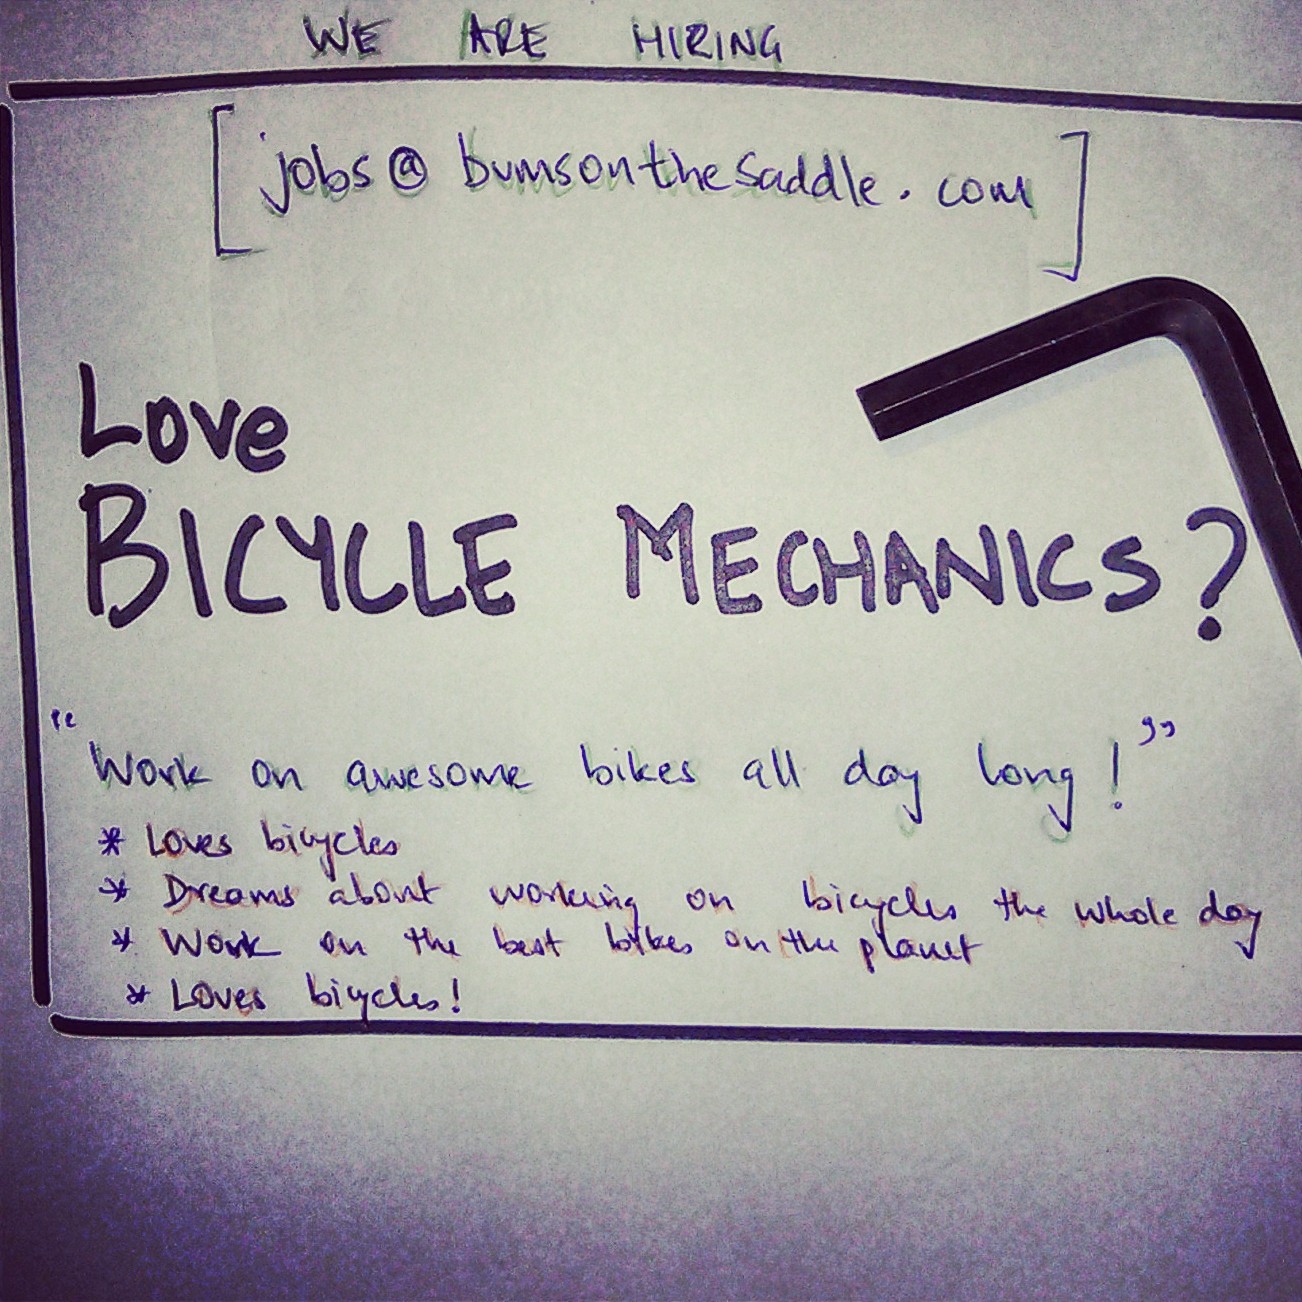 WE ARE HIRING
[jobs@bumsonthesaddle.com]
Love
BICYCLE MECHANICS?
"Work on awesome bikes all day long!"
* Loves bicycles
* Dreams about working on bicycles the whole day
* Work on the best bikes on the planet
* Loves bicycles!